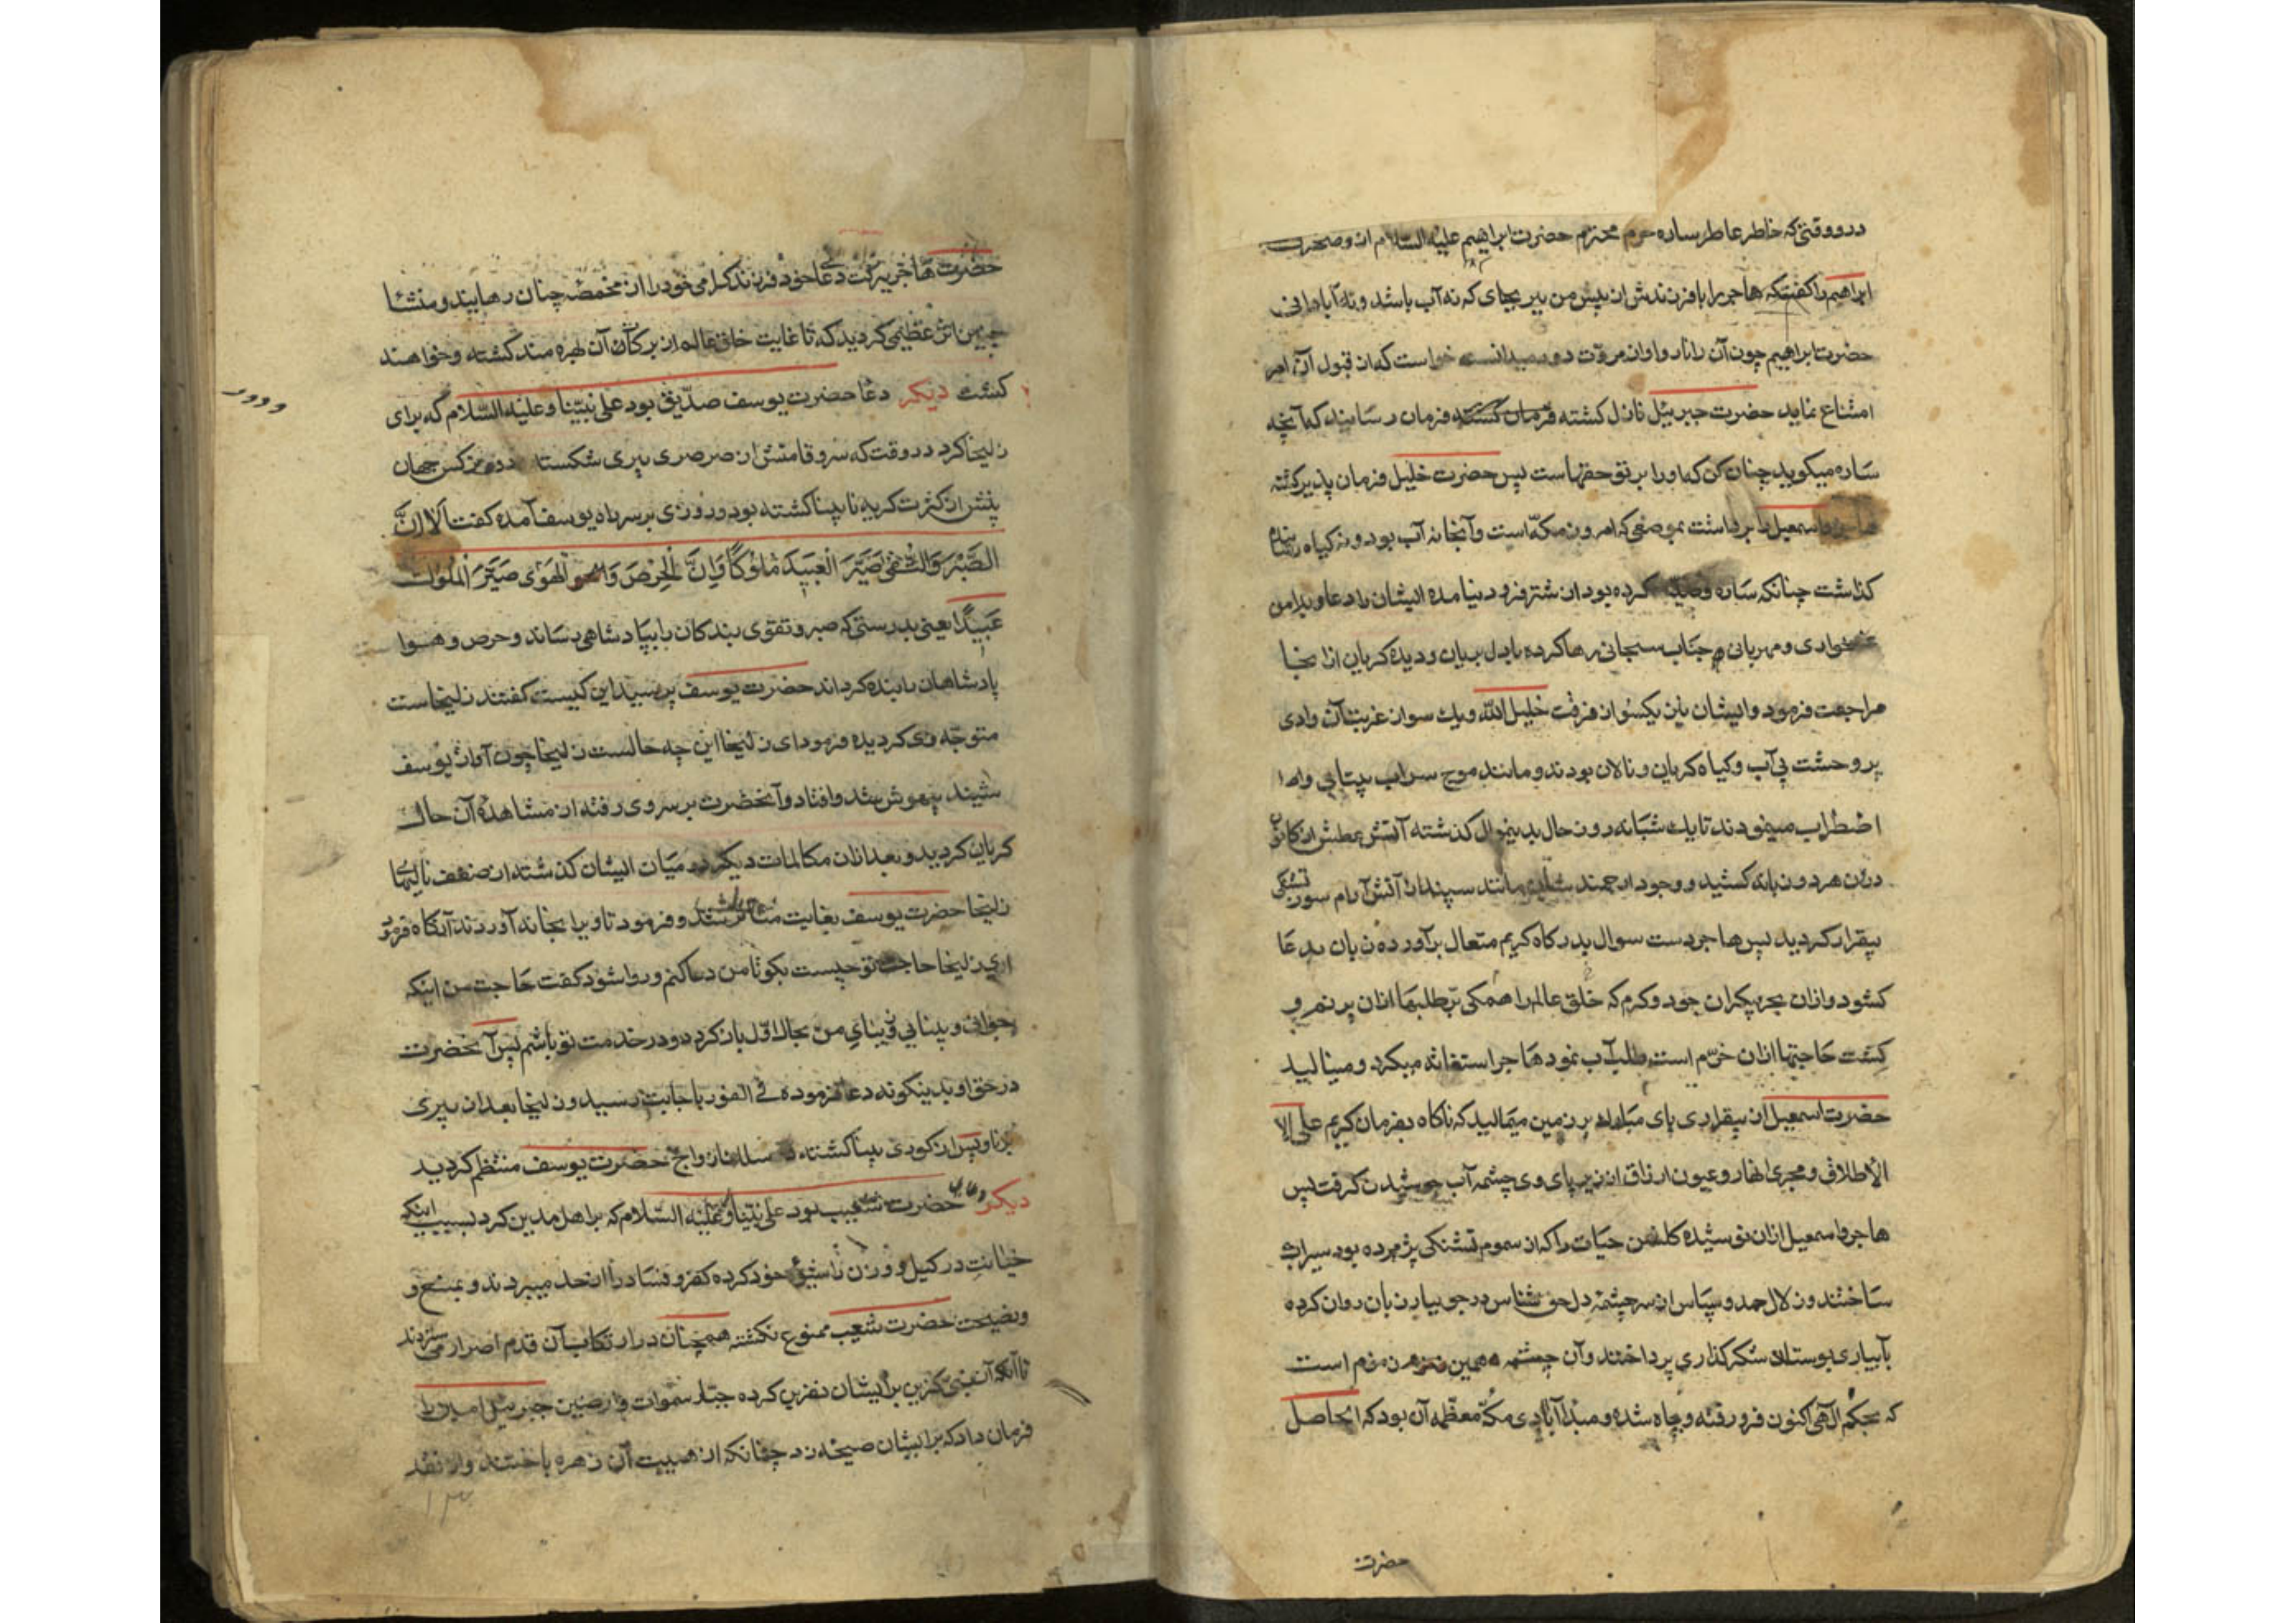 در وقتی که خاطر عاطر ساره حرم محترم حضرت ابراهیم علیه السلام از وصحبت
ابراهیم را گفت که هاجر را با فرزندش از پیش من ببر بجای که نه آب باشد و نه آبادانی
حضرت ابراهیم چون آن را ناروا و از مروّت دور میدانست خواست که از قبول آن امر
امتناع نماید حضرت جبرئیل نازل کشته فرمان کشته فرمان رسانید که آنچه
ساره میکوید چنان کن که او را بر تو حقهاست پس حضرت خلیل فرمان پذیر کشته
هاجر و اسمعیل را برداشت بموضعی که امروز مکّه است و آنجا نه آب بود و نه کیاه رسانده
کذاشت چنانکه ساره کرده بود از شتر فرود نیامده ایشان را دعا و بدامن
غمخواری و مهربانی جناب سبحانی رها کرده با دل بریان و دیده کریان از انجا
مراجعت فرمود و ایشان باین یکسو از فرقت خلیل الله و یک سو از غربت آن وادی
پر وحشت بی آب و کیاه کریان و نالان بودند و مانند موج سراب بیتابی و
اضطراب مینمودند تا یک شبانه روز حال بدینمنوال کذشته آتش عطش از کانون
درون هر دو زبانه کشید و وجود ارجمند شان مانند سپند از آتش آرام سوز تشنکی
بیقرار کردید پس هاجر دست سوال بدرکاه کریم متعال برآورده زبان بدعا
کشود و ازان بحر بیکران جود و کرم که خلق عالم را همکی بر طلبها ازان پر نم و
کشت حاجتها ازان خرّم است طلب آب نمود هاجر استغاثه میکرد و مینالید
حضرت اسمعیل از بیقراری پای مبارک بر زمین میمالید که ناکاه بفرمان کریم علی الا
الاطلاق و مجری انهار و عیون ارزاق از زیر پای وی چشمه آب جوشیدن کرفت پس
هاجر و اسمعیل ازان نوشیده کلشن حیات را که از سموم تشنکی پژمرده بود سیراب
ساختند و زلال حمد و سپاس از سرچشمه دل حق شناس در جویبار زبان روان کرده
بآبیاری بوستان شکرکذاری پرداختند و آن چشمه همین زمزم است
که بحکم الٓهی اکنون فرو رفته و چاه شده و مبدا آبادی مکّه معظّمه آن بود که الحاصل
حضرت
حضرت هاجر ببرکت دعا خود فرزند کرامی خود را از مخمصه چنان رهانید و منشا
چنین اثر عظیمی کردید که تا غایت خلق عالم از برکات آن بهره مند کشته و خواهند
کشت دیکر دعا حضرت یوسف صدّیق بود علی نبیّنا و علیه السّلام که برای
زلیخا کرد در وقت که سرو قامتش از صرصر پیری شکسته و نرکس جهان
بینش از کثرت کریه نابینا کشته بود و روزی بر سر راه یوسف آمده کفت اَلا اِنَّ
الصَّبْرَ وَالتُّقٰی صَیَّرَ الْعَبِیدَ مُلُوکًا وَاِنَّ الْحِرْصَ وَ الْهَوٰی صَیَّرَ الْمُلُوکَ
عَبِیدًا یعنی بدرستی که صبر و تقوی بندکان را بپادشاهی رساند و حرص و هوا
پادشاهان را بنده کرداند حضرت یوسف پرسید این کیست کفتند زلیخاست
متوجّه وی کردیده فرمود ای زلیخا این چه حالست زلیخا چون آواز یوسف
شنید بیهوش شد و افتاد و آنحضرت بر سر وی رفته از مشاهده آن حال
کریان کردید و بعد ازان مکالمات دیکر در میان ایشان کذشته از ضعف نالیهای
زلیخا حضرت یوسف بغایت متاثر شد و فرمود تا ویرا بخانه آوردند آنکاه فرمود
ای زلیخا حاجت تو چیست بکو تا من دعا کنم و روا شود کفت حاجت من اینکه
جوانی و بینایی و زیبای من بحال اوّل باز کردد و در خدمت تو باشم پس آنحضرت
در حق او بدینکونه دعا فرموده فی الفور باجابت رسید و زلیخا بعد از پیری
برنا و پس از کوری بینا کشته در سلک ازواج حضرت یوسف منتظم کردید
دیکر دعای حضرت شعیب بود علی نبیّنا و علیه السّلام که بر اهل مدین کرد بسبب اینکه
خیانت در کیل و وزن را شیوع خود کرده کفر و فساد را از حد میبردند و بمنع و
و نصیحت حضرت شعیب ممنوع نکشته همچنان در ارتکاب آن قدم اصرار میزدند
تا آنکه آن نبی کزین بر ایشان نفرین کرده جبّار سموات و ارضین جبرئیل امین را
فرمان داد که بر ایشان صیحه زد چنانکه از هیبت آن زهره باختند و از نقد
۱۳